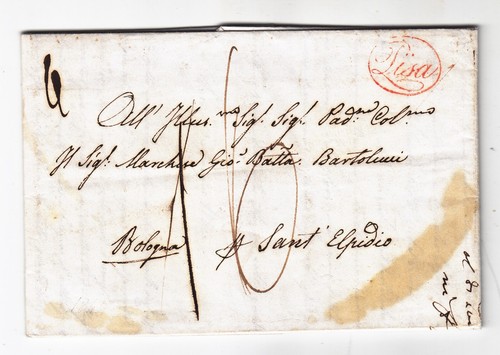 Pisa
All' Illus.mo Sig.r Sig.r Pad.n Col.mo
Il Sig.r Marchese Gio. Batta. Bartolucci
Bologna Sant' Elpidio
16